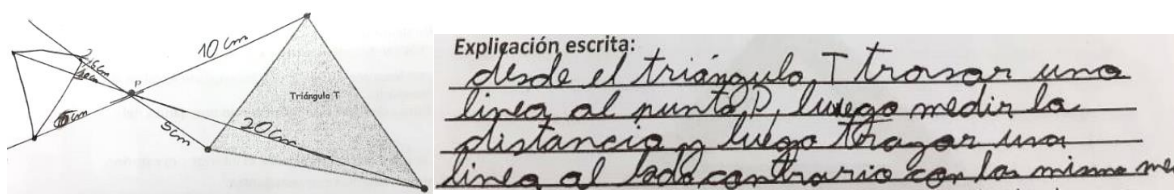 2,5cm
10cm
P
10 cm
Triángulo T
5cm
5cm
20cm
Explicación escrita:
desde el triángulo T trasar una
linea al punto P, luego medir la
distancia y luego trazar una
linea al lado contrario con las misma me